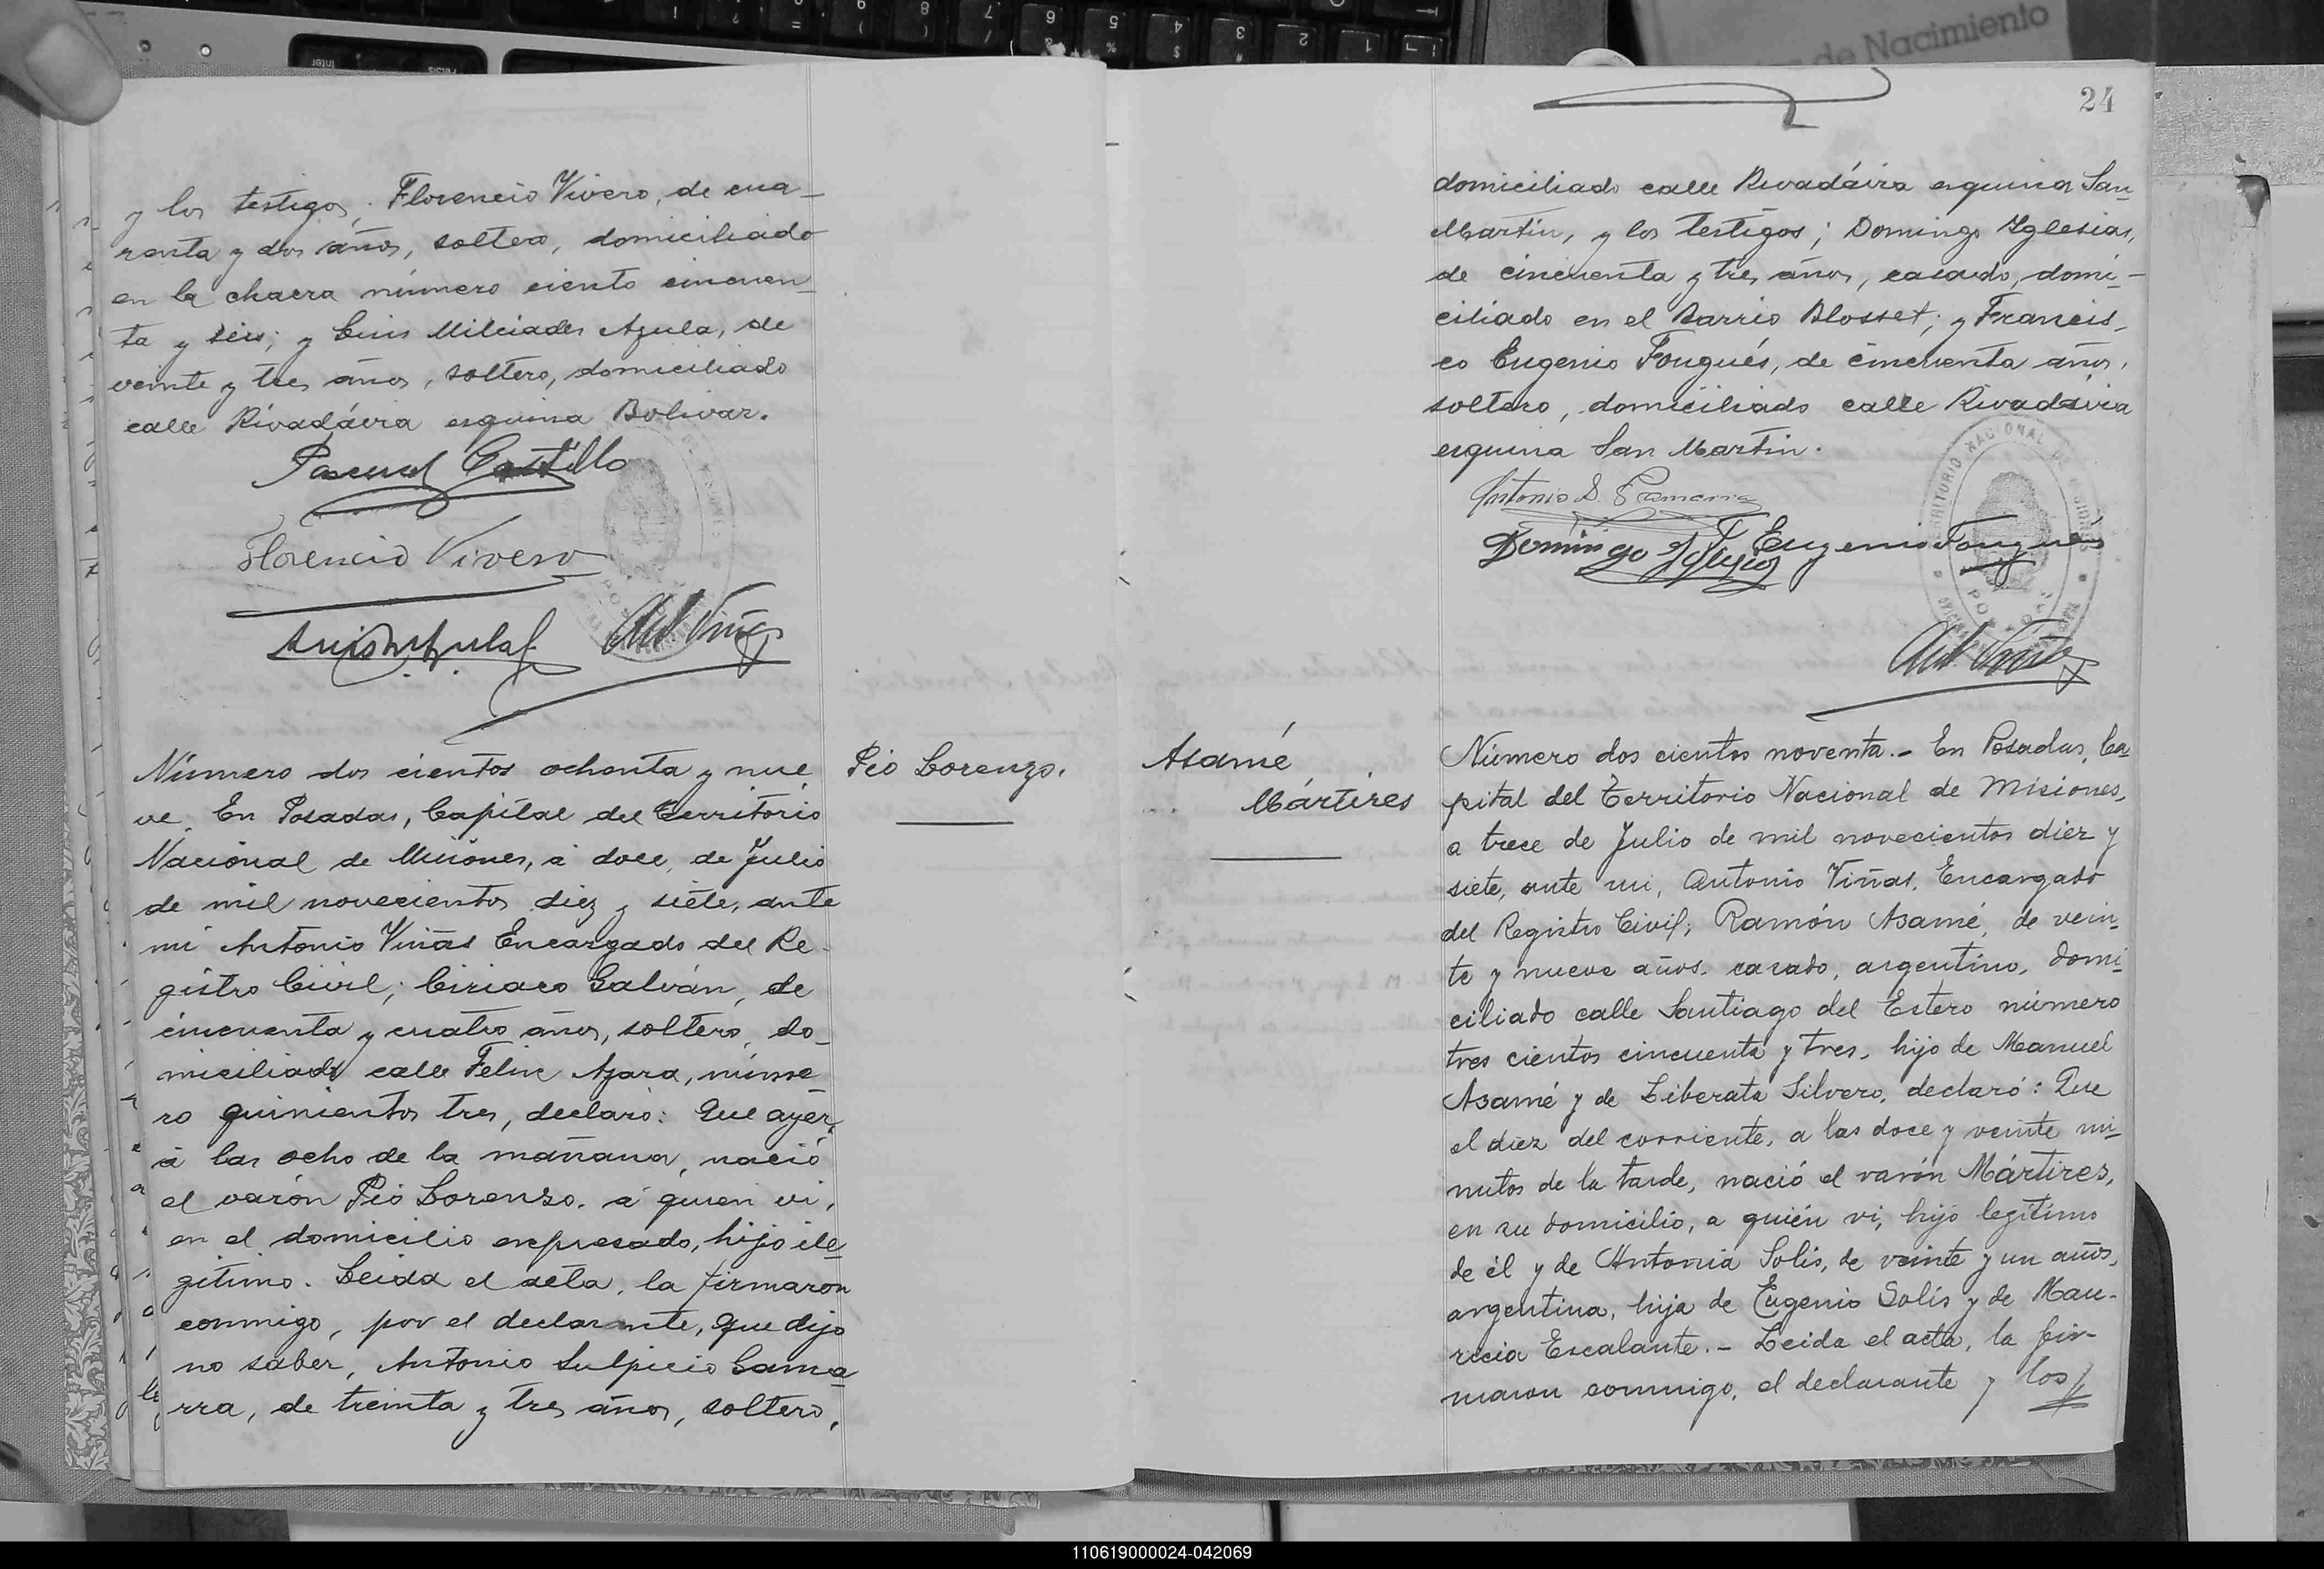 y los testigos; Florencio Vivero, de cua-
renta y dos años, soltero, domiciliado
en la chacra número ciento cincuen-
ta y seis; y Luis Milciades Azula, de
veinte y tres años, soltero, domiciliado
calle Rivadávia esquina Bolivar.
Pascual Castillo
Florencio Vivero
Ant Viñas
Número dos cientos ochenta y nue
ve. En Posadas, Capital del Territorio
Nacional de Misiones, á doce, de Julio
de mil novecientos diez y siete, ante
mi Antonio Viñas Encargado del Re-
gistro Civil; Ciriaco Galván, de
cincuenta y cuatro años, soltero, do-
miciliado calle Felix Azara, núme-
ro quinientos tres, declaró: Que ayer,
á las ocho de la mañana, nació
el varón Pío Lorenzo, á quien vi,
en el domicilio expresado, hijo ile-
gítimo. Leida el acta, la firmaron
conmigo, por el declarante, que dijo
no saber, Antonio Sulpicio Gama-
rra, de treinta y tres años, soltero,
Pío Lorenzo.
24
domiciliado calle Rivadávia esquina San
Martín, y los testigos; Domingo Yglesias,
de cincuenta y tres años, casado, domi-
ciliado en el Barrio Blosset; y Francis-
co Eugenio Fougués, de cincuenta años,
soltero, domiciliado calle Rivadávia
esquina San Martin.
Antonio S. Gamarra
Domingo Yglesias
F Eugenio Fougués
Ant Viñas
Asamé
Mártires
Número dos cientos noventa.- En Posadas, Ca-
pital del Territorio Nacional de Misiones,
a trece de Julio de mil novecientos diez y
siete, ante mi, Antonio Viñas, Encargado
del Registro Civil; Ramón Asamé, de vein-
te y nueve años, casado, argentino, domi-
ciliado calle Santiago del Estero número
tres cientos cincuenta y tres, hijo de Manuel
Asamé y de Liberata Silvero, declaró: Que
el diez del corriente, a las doce y veinte mi-
nutos de la tarde, nació el varón Mártires,
en su domicilio, a quién vi, hijo legítimo
de él y de Antonia Solis, de veinte y un años,
argentina, hija de Eugenio Solís y de Mau-
ricia Escalante.- Leida el acta, la fir-
maron conmigo, el declarante y los
110619000024-042069